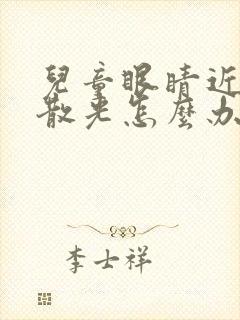 兒童眼睛近
散光怎麼办
李士祥